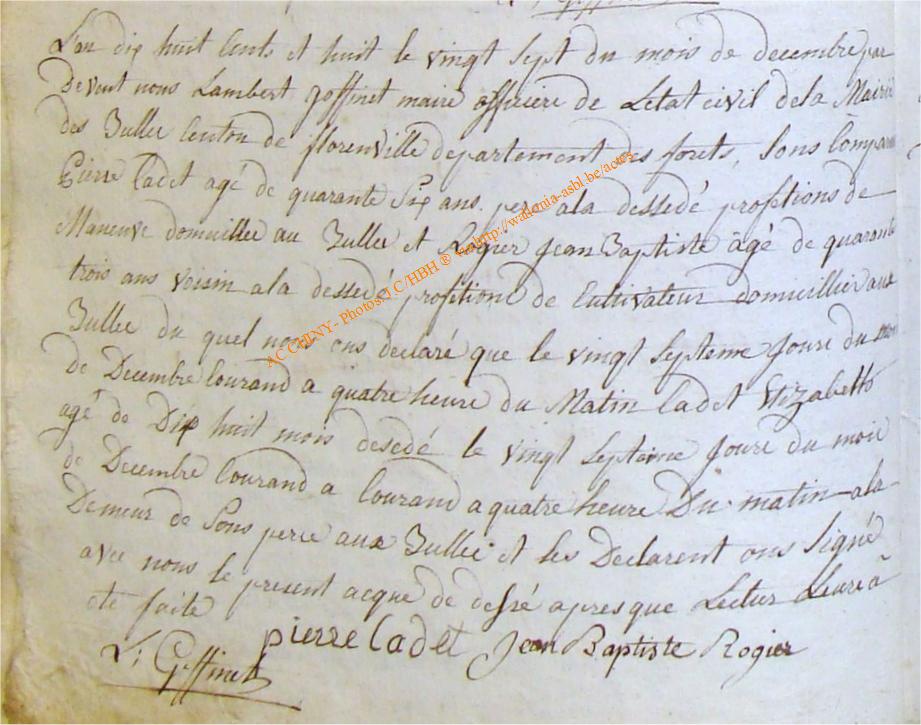 L. Goffinet
L'an dix huit cents et huit le vingt sept du mois de decembre par
devent nous Lambert Joffinet maire officiere de L'etat civil de la Mairie
des Bulles Centon de florenville departement des forets, sons Compari
Pierre Cadet agé de quarante six ans pere ala dessedé profitions de
Maneuve domicillier au Bulles et Rogier Jean Baptiste âgé de quarante
trois ans voisin ala dessedé profitions de Cultivateur domuillier aux
Bulles du quel nous ons declaré que le vingt septieme Joure du mois
de Decembre Courand a quatre heure du Matin Cadet Elizabette
agé de Dix huit mois desedé le vingt septieme Joure du mois
de Decembre Courand a Courand a quatre heure Du matin ala
Demeur de Sons pere aux Bulles et les Declarent ons signé
avec nous le present acque de desé apres que Lectur Leure a
eté faite
pierre Cadet Jean Baptiste Rogier
L. Goffinet
AC CHINY - Photos: JC/HBH ® via http://wallonia-asbl.be/actes